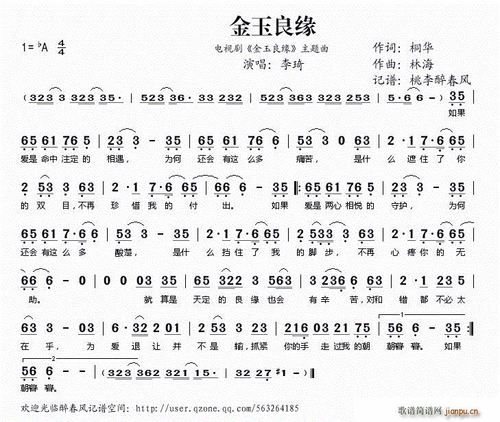 金玉良缘
1=♭A 4/4
电视剧《金玉良缘》主题曲
演唱：李琦
作词：桐华
作曲：林海
记谱：桃李醉春风
(323 323 35· | 523 36· 33 232 | 323 323 35 523 | 5·6 6 -) 35 |
如果
65 61 76 5 | 23 3 - 35 | 65 61 7·6 5 | 53 3 0 63 | 2·1 7·6 65 |
爱是 命中 注定的 相遇， 为何 还会 有这么多 痛苦， 是什 么 遮住了你
2 53 3 63 | 2·1 7·6 65 | 6 - - 35 |: 65 61 76 5 | 23 3 - 35 |
的 双 目，不再 珍惜我的 付 出。 如果 爱是 两心 相悦的 守护， 为何
65 61 7·6 5 | 53 3 - 35 | 2·1 7·6 65 | 23 3 - 63 | 2·1 235 |
还会 有这么多 酸楚， 是什 么 挡住了我 的脚步， 不再 心疼你的 无
66 6 - - | 0 0 03 35 | 65 322 3 563 | 36 6 - 63 | 2·1 235 |
助。 就 算是 天定的 良 缘也会 有 辛苦，对和 错 都 不必太
63 3 - 03 | 6· 32 201 | 2 - - 053 | 2 0 2 - 03 | 216 03 21 75 | 56 6 - 35 :|
在 乎， 为 爱 退让 并 不是 输，抓紧 你的手 走过我的 朝朝暮暮。 如果
56 6 - - | 323 362 321 15 | 2·1 2 32 327 #1 -) ‖
朝朝暮暮。
欢迎光临醉春风记谱空间：http://user.qzone.qq.com/563264185
歌谱简谱网
jianpu.cn